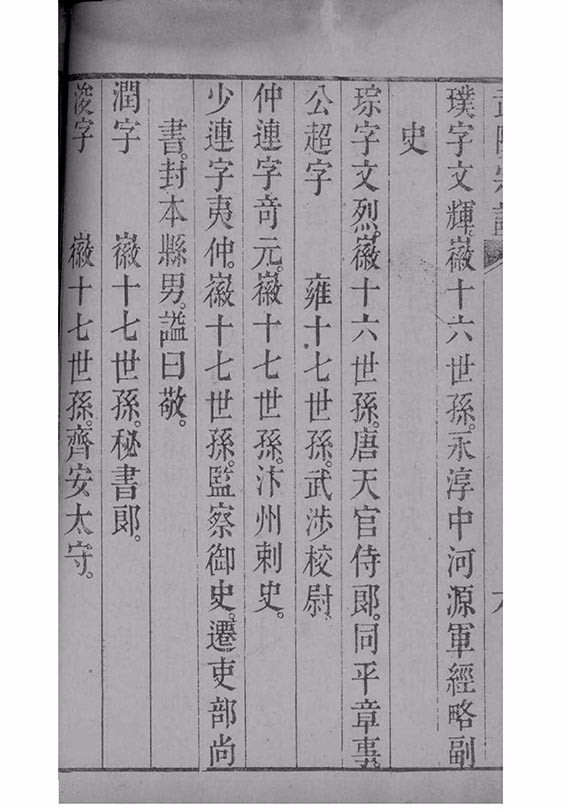 璞字文輝。徽十六世孫。永淳中河源軍經略副
史
琮字文烈。徽十六世孫。唐天官侍郎。同平章事。
公超字　雍十七世孫。武涉校尉
仲連字奇元。徽十七世孫。汴州刺史。
少連字夷仲。徽十七世孫。監察御史。遷吏部尚
書。封本縣男。謚曰敬。
潤字　徽十七世孫。秘書郎。
浚字　徽十七世孫。齊安太守。